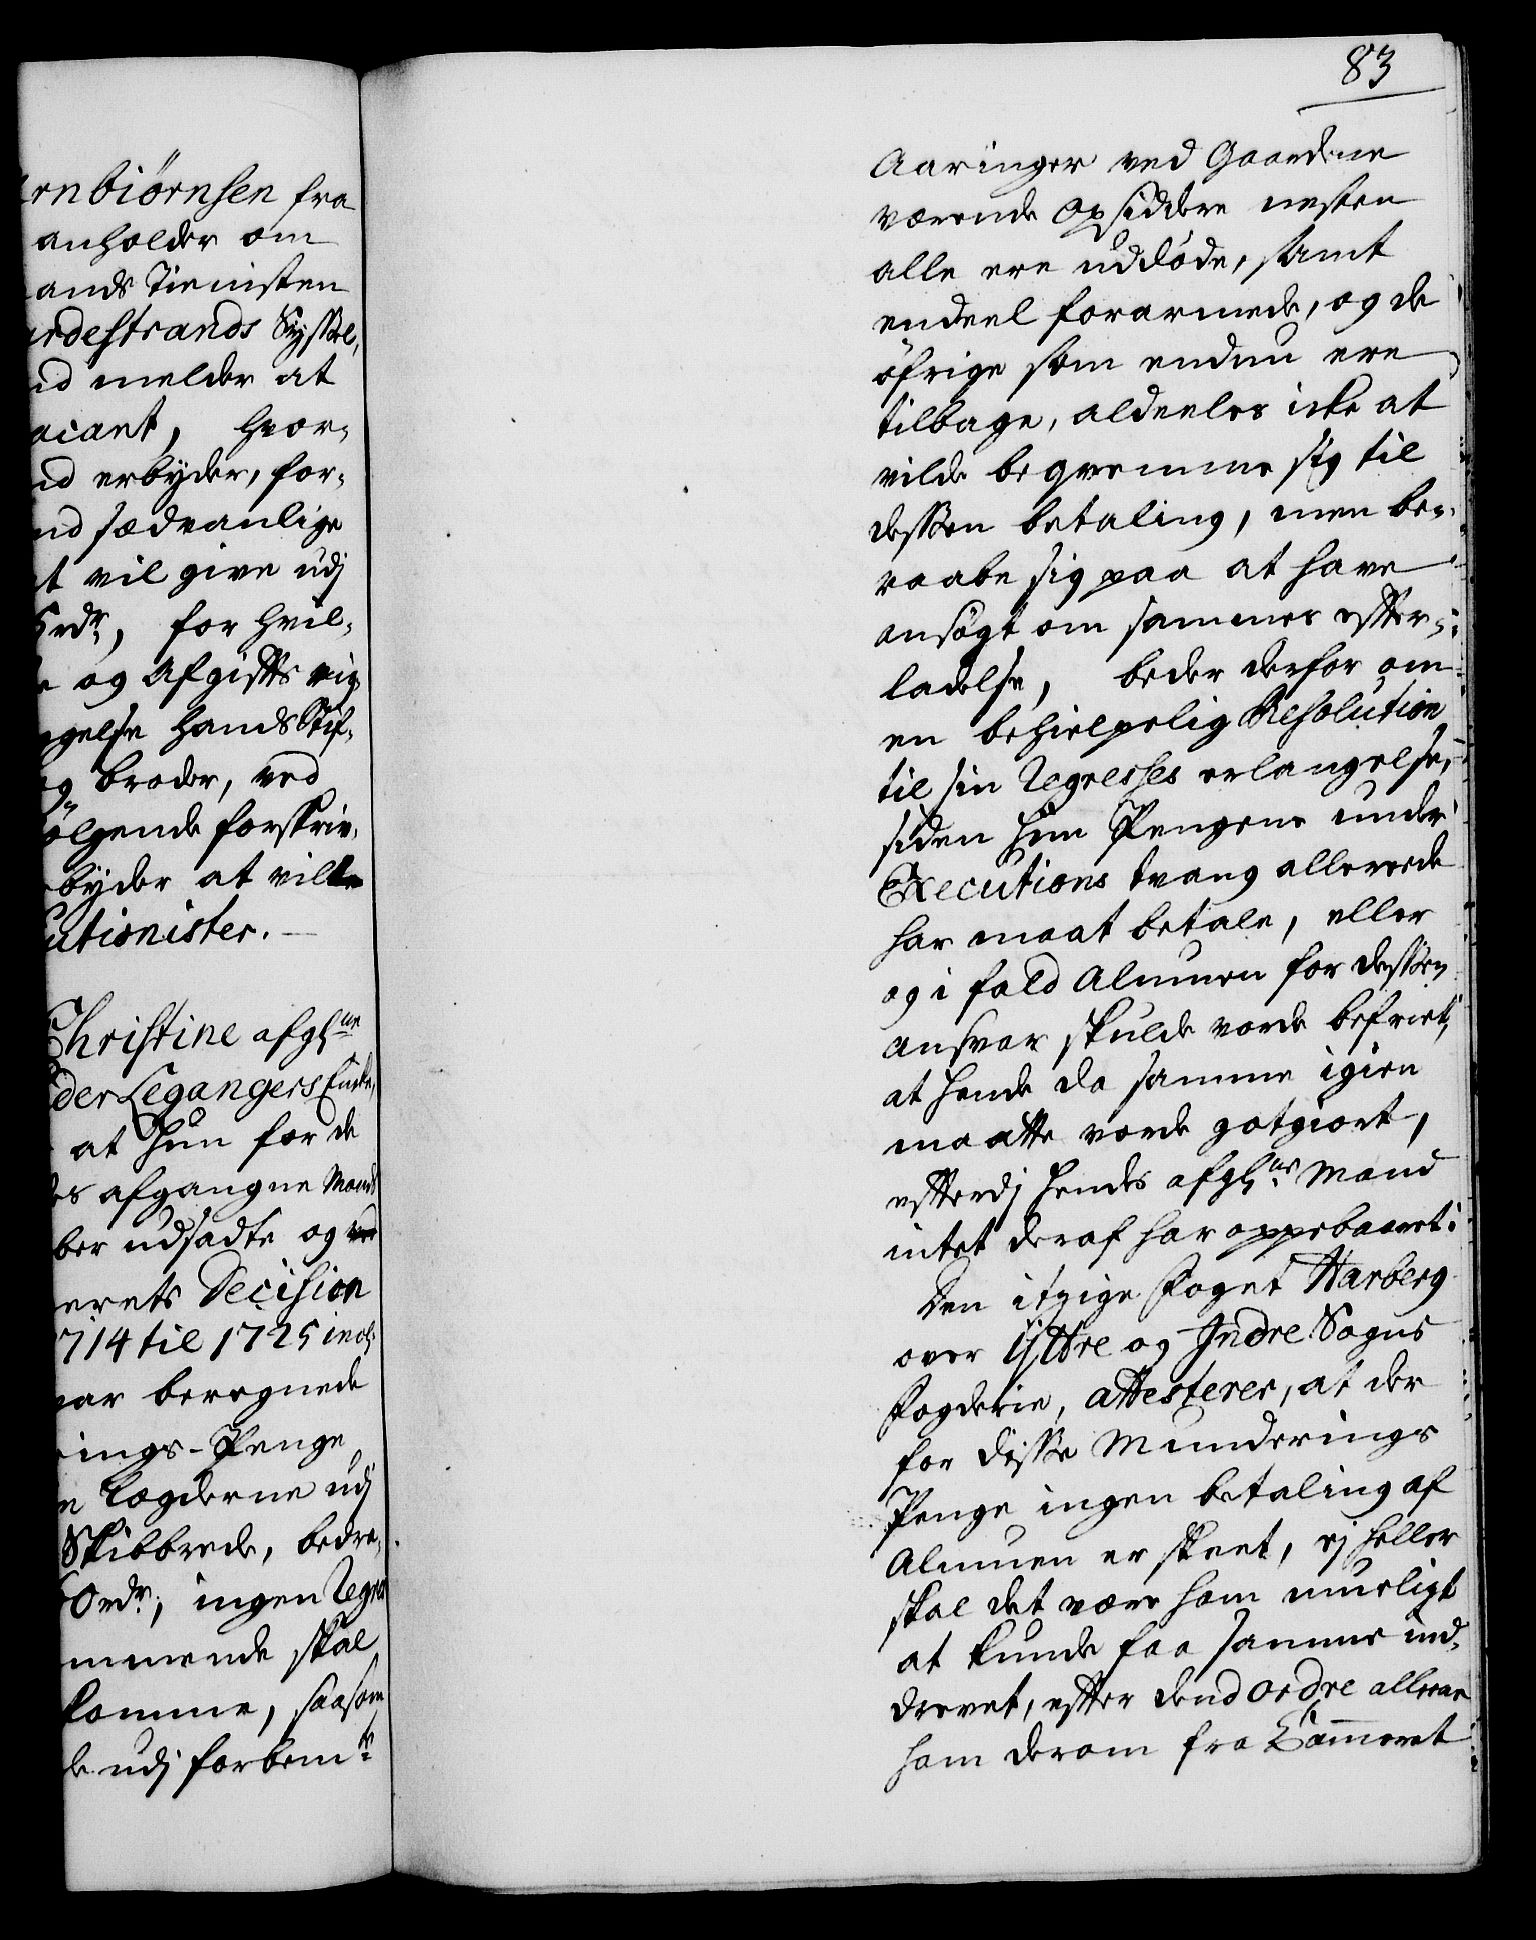 rnbiörnsen fra
anholder om
ands Tienisten
ardestrands Syssel,
nd melder at
acant, hvor-
nd erbyder, for-
nd sædvanlige
t vil give udj
Crdr., for hvil-
og Afgifts rig
gelse hands Stif-
g broder, ved
ölgende forskriv-
byder at ville
utionister.
Christine afgl:ne
der Legangers Enke,
at hun for de
es afgangne Mands
ber udsadte og
erets Decision
1714 til 1725 incl:
har beregnede
rings-Penge
Lægderne udj
Skibbrede, bedra-
Ordr; ingen Regres
mmende skal
komme, saasom
de udj forbemte
83
Aaringer ved Gaardene
værende opsiddere nesten
alle ere uddöde, samt
endeel forarmede, og de
öfrige som endnu ere
tilbage, aldeeles icke at
vilde beqvemme sig til
dessen betaling, men be-
raabe sig paa at have
ansögt om sammes efter-
ladelse, beder derfor om
en behielpelig Resolution
til sin Regresses erlangelse,
siden hun Pengene under
Executions tvang allereede
har maat betale, eller
og i fald Almuen for dessen
ansvar skulde vorde befriet,
at hende da samme igien
maatte vorde gotgiort,
efterdj hendes afgl:ne Mand
intet deraf har oppebaaret.
Den itzige Foget Harberg
over Yttre og Indre Sogns
Fogderie, attesterer, at der
for disse Munderings
Penge ingen betaling af
Almuen er skeet, ej heller
skal det være ham mueligt
at kunde faa samme ind-
drevet, efter dend ordre allene
ham derom fra Cammeret